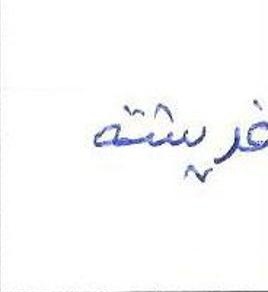 فريشته